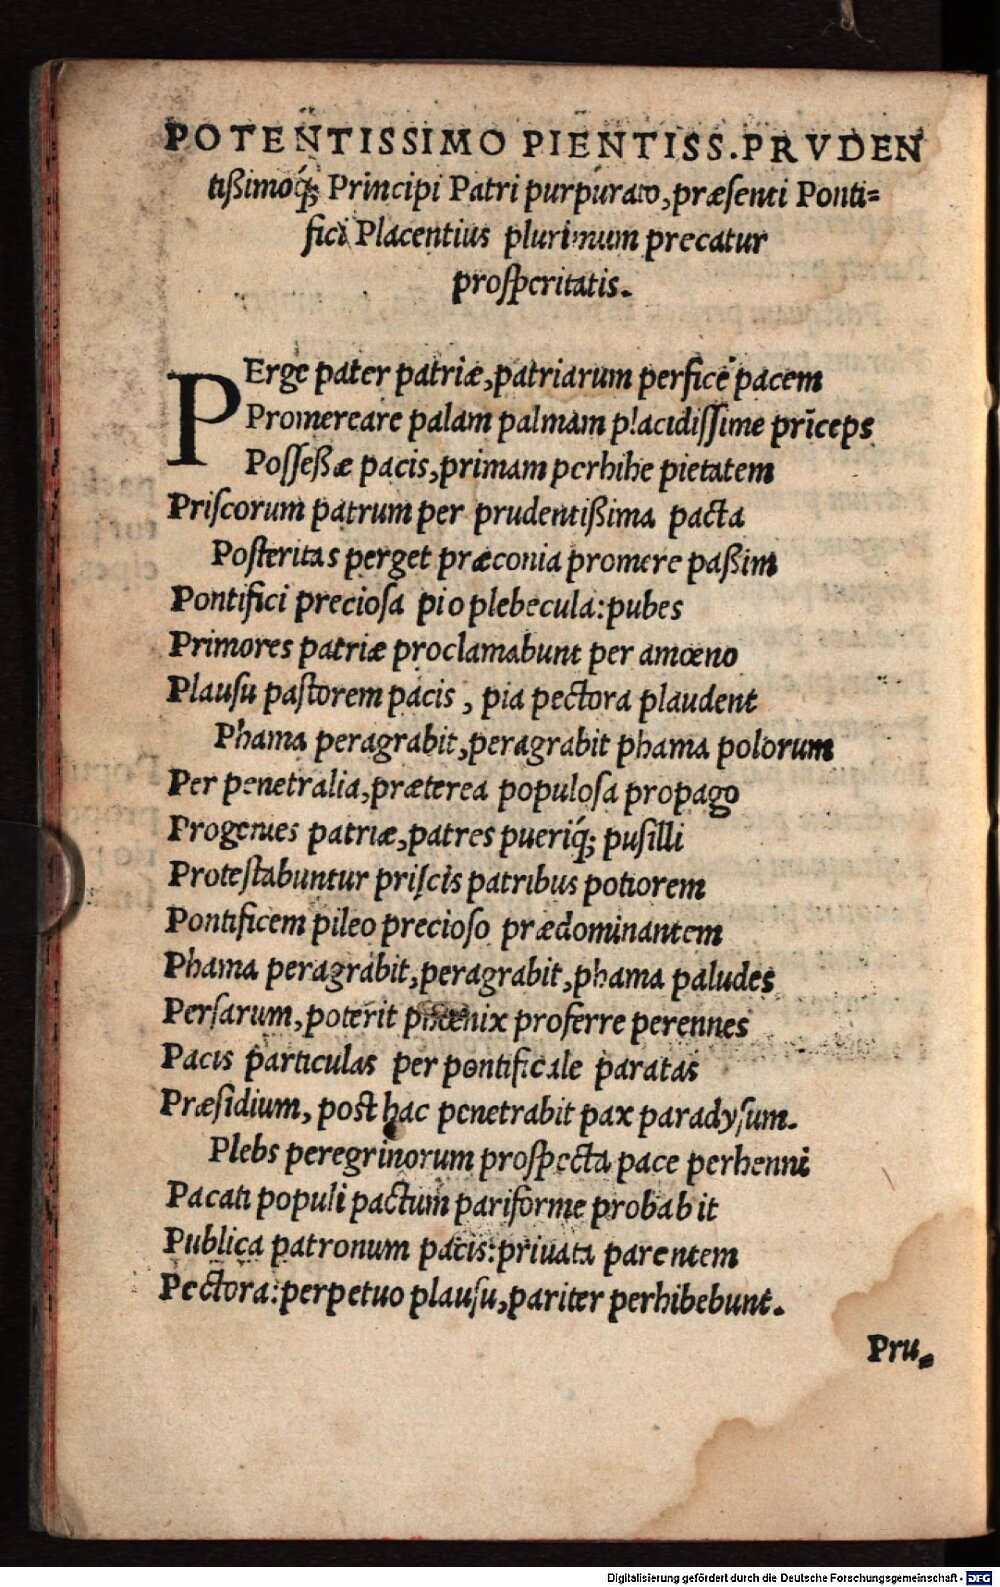 POTENTISSIMO PIENTISS.PRVDEN
tißimoq́; Principi Patri purpurato,præsenti Ponti=
fici Placentius plurimum precatur
prosperitatis.
PErge pater patriæ,patriarum perfice pacem
Promereare palam palmam placidiſſime prīceps
Poſſeßæ pacis,primam perhibe pietatem
Priſcorum patrum per prudentißima pacta
Poſteritas perget præconia promere paßim
Pontifici precioſa pio plebecula:pubes
Primores patriæ proclamabunt per amœno
Plauſu paſtorem pacis , pia pectora plaudent
Phama peragrabit,peragrabit phama polorum
Per penetralia,præterea populoſa propago
Progenies patriæ,patres pueriq́; puſilli
Proteſtabuntur priſcis patribus potiorem
Pontificem pileo precioſo prædominantem
Phama peragrabit,peragrabit,phama paludes
Perſarum,poterit phœnix proferre perennes
Pacis particulas per pontificale paratas
Præſidium, poſt hac penetrabit pax paradyſum.
Plebs peregrinorum proſpecta pace perhenni
Pacati populi pactum pariforme probabit
Publica patronum pacis:priuata parentem
Pectora:perpetuo plauſu,pariter perhibebunt.
Pru=
Digitalisierung gefördert durch die Deutsche Forschungsgemeinschaft - DFG